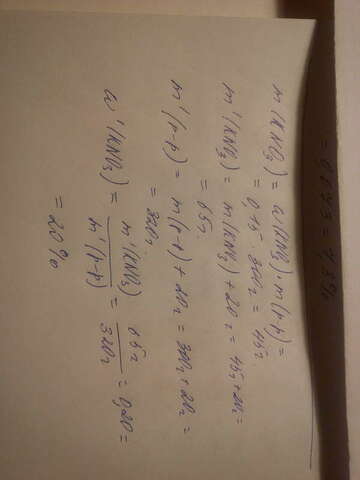 = 0,073 = 7,3%
m(KNO₃) = ω(KNO₃)·m(р-р) =
= 0,15·300г = 45г
m'(KNO₃) = m(KNO₃) + 20г = 45г + 20г =
= 65г
m'(р-р) = m(р-р) + 20г = 300г + 20г =
= 320г
ω'(KNO₃) = m'(KNO₃) / m'(р-р) = 65г / 320г = 0,20 =
= 20%